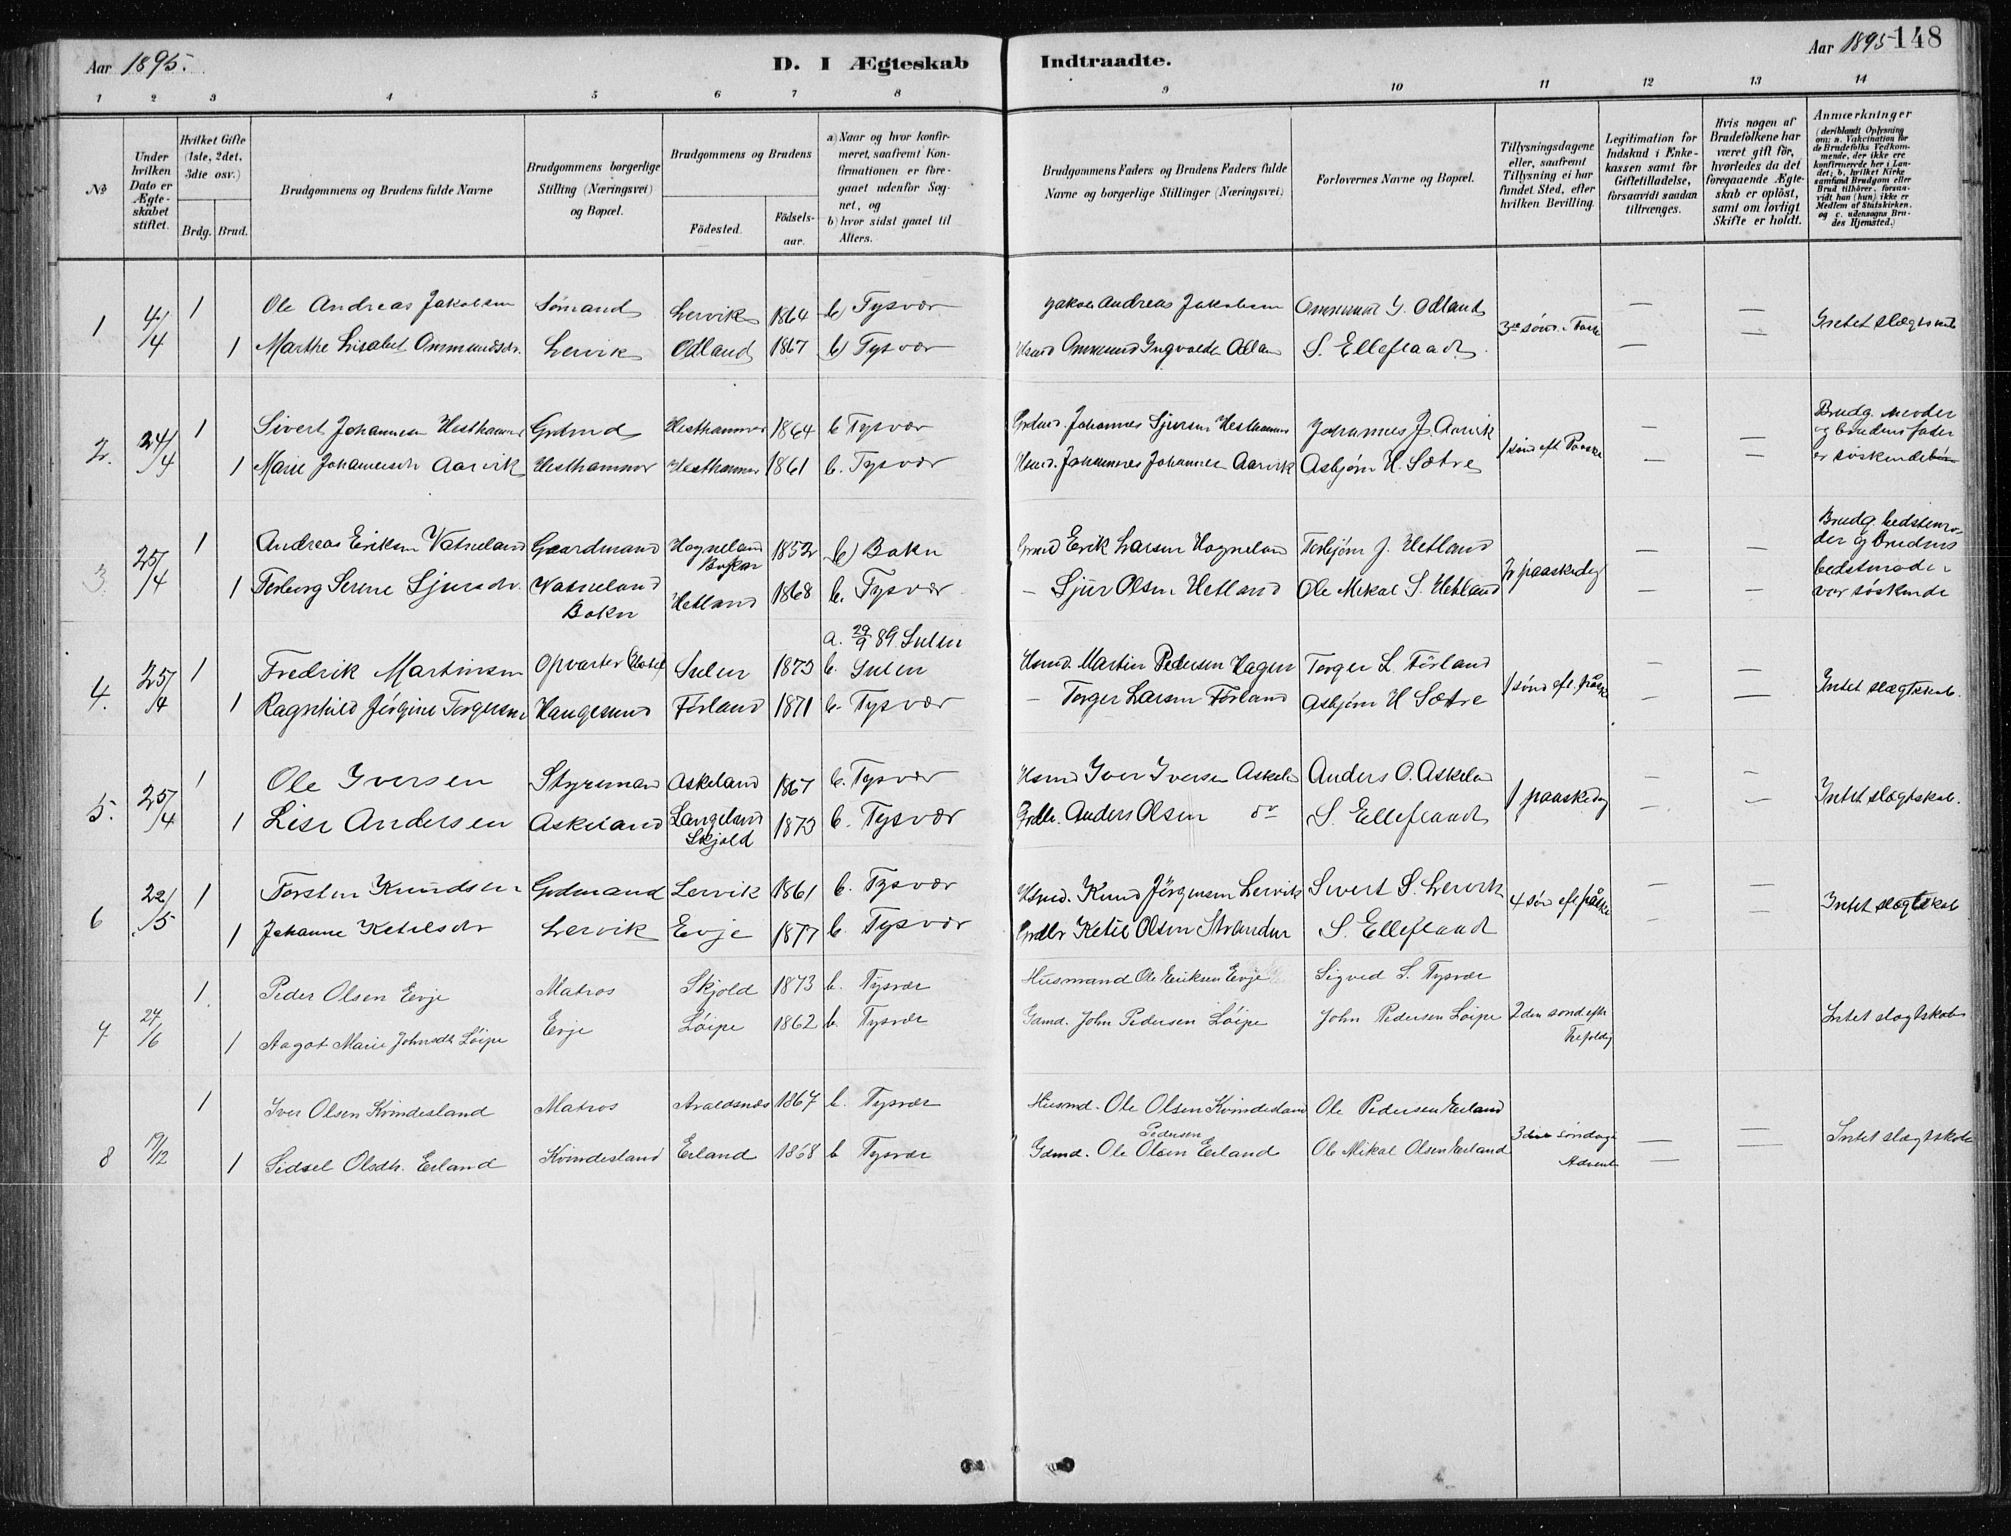 Aar 1895.
D. I Ægteskab
Indtraadte.
Aar 1895 148
1 2 3 4 5 6 7 8 9 10 11 12 13 14
№
Under hvilken Dato er Ægteskabet stiftet.
Hvilket Gifte (1ste, 2det, 3die osv.)
Brdg. Brud.
Brudgommens og Brudens fulde Navne
Brudgommens borgerlige Stilling (Næringsvei) og Bopæl.
Brudgommens og Brudens
Födested.
Födselsaar.
a) Naar og hvor konfirmeret, saafremt Konfirmationen er foregaaet udenfor Sognet, og
b) hvor sidst gaaet til Alters.
Brudgommens Faders og Brudens Faders fulde Navne og borgerlige Stillinger (Næringsvei)
Forlovernes Navne og Bopæl.
Tillysningsdagene eller, saafremt Tillysning ei har fundet Sted, efter hvilken Bevilling.
Legitimation for Indskud i Enkekassen samt for Giftetilladelse, forsaavidt saadan tiltrænges.
Hvis nogen af Brudefolkene har været gift för, hvorledes da det foregaaende Ægteskab er oplöst, samt om lovligt Skifte er holdt.
Anmærkninger
(deriblandt Oplysning om: a. Vakcination for de Brudefolks Vedkommende, der ikke ere konfirmerede her i Landet; b. hvilket Kirkesamfund Brudgom eller Brud tilhörer, forsaavidt han (hun) ikke er Medlem af Statskirken, og c. udensogns Brudes Hjemsted.)
1 4/4 1 Ole Andreas Jakobsen Sømand Lervik 1864 b) Tysvær Jakob Andreas Jakobsen Ommund G. Odland — — Intet slægtskab
1 Marthe Lisabet Ommundsdr. Lervik Odland 1867 b) Tysvær Husmd Ommund Ingvaldsen S. Elleflaadt — —
2. 24/4 1 Sivert Johannesen Hesthammer Grdmd Hesthammer 1864 b Tysvær Grdmd. Johannes Sjursen Hesthammer Johannes J. Aarvik 1 sønd eft Paaske — — Brudg. moder og brudens fader er søskende
1 Marie Johannesdr Aarvik Hesthammer Hesthammer 1861 b. Tysvær Husmd. Johannes Johannesen Aarvik Asbjørn H. Sætre — —
3. 25/4 1 Andreas Eriksen Vatneland Gaardmand Hogneland Bokn 1852 b) Bokn Grmd Erik Larsen Hogneland Torbjørn J. Hetland 2 paaskedag — — Brudg. bedstemoder og Brudens bedstemoder var søskende
1 Torborg Serene Sjursdr. Vatneland Bokn Hetland 1868 b. Tysvær — Sjur Olsen Hetland Ole Mikal S. Hetland — —
a. 29/9 89. Sulen
4. 25/4 1 Fredrik Martinsen Opvarter (Hotel) Sulen 1873 b. Sulen Husmd. Martin Pedersen Hagen Torger L. Førland 1 sønd eft. påske — — Intet slægtskab.
1 Ragnhild Jørgine Torgersdr Haugesund Førland 1871 b. Tysvær — Torger Larsen Førland Asbjørn H Sætre — —
5. 25/4 1 Ole Iversen Styrmand Askeland 1867 b. Tysvær Husmd Iver Iversen Askelad Anders O. Askeland 1 paaskedag — — Intet slægtskab.
1 Lise Andersen Askeland Langeland Skjold 1873 b. Tysvær Grdbr. Anders Olsen do S. Elleflaadt — —
6 22/5 1 Torsten Knudsen Grdmand Lervik 1861 b. Tysvær Husmd. Knud Jørgensen Lervik Sivert S. Lervik 4 søn eft påske — — Intet slægtskab
1 Johanne Ketelsdr Lervik Evje 1877 b. Tysvær Grdbr Ketil Olsen S. Elleflaadt — —
7 27/6 1 Peder Olsen Evje Matros Skjold 1873 b. Tysvær Husmand Ole Eriksen Evje Sigved S. Tysvær 2den sønd eftr Trefoldig Intet slægtskab
1 Aagot Marie Johnsdtr Løipe Evje Løipe 1862 b. Tysvær Gdmd. John Pedersen Løipe John Pedersen Løipe
8 19/12 1 Iver Olsen Kvindesland Matros Avaldsnæs 1867 b. Tysvær Husmd. Ole Olsen Kvindesland Ole Pedersen Erland 3die søndag Advent — — Intet slægtskab
1 Sidsel Olsdtr. Erland Kvindesland Erland 1868 b Tysvær Gdmd. Ole Olsen Pedersen Erland Ole Mikal Olsen Erland — —